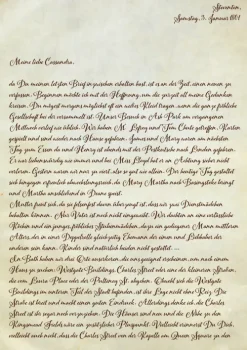 Steventon,
Samstag, 3. Januar 1801
Meine liebe Cassandra,
da Du meinen letzten Brief inzwischen erhalten hast, ist es an der Zeit, einen neuen zu
verfassen. Beginnen möchte ich mit der Hoffnung, um die zurzeit all meine Gedanken
kreisen. Du mögest morgens möglichst oft ein weißes Kleid tragen, wenn die ganze fröhliche
Gesellschaft bei der versammelt ist. Unser Besuch in Ash Park am vergangenen
Mittwoch verlief wie üblich. Wir haben M. Lefroy und Tom Chute getroffen, Karten
gespielt und sind wieder nach Hause gefahren. James und Mary waren am nächsten
Tag zum Essen da und Henry ist abends mit der Postkutsche nach London gefahren.
Er war liebenswürdig wie immer und bei Miss Lloyd hat er an Achtung sicher nicht
verloren. Gestern waren wir nur zu viert, also ganz wie allein. Der heutige Tag gestaltet
sich hingegen erfreulich abwechslungsreich, da Mary Martha nach Basingstoke bringt
und Martha anschließend in Deane speist.
Mutter freut sich, da sie felsenfest davon überzeugt ist, dass wir zwei Dienstmädchen
behalten können. Nur Vater ist noch nicht eingeweiht. Wir denken an eine verlässliche
Köchin und ein junges, fröhliches Stubenmädchen, dazu ein gestandener Mann mittleren
Alters, der in einer Doppelrolle gleichzeitig Ehemann der einen und Liebhaber der
anderen sein kann. Kinder sind natürlich beiden nicht gestattet. ...
In Bath haben wir drei Orte ausersehen, die uns geeignet erscheinen, um nach einem
Haus zu suchen: Westgate Buildings, Charles Street oder eine der kleineren Straßen,
die von Laura Place oder der Pulteney St. abgehen. Obwohl sich die Westgate
Buildings im unteren Teil der Stadt befinden, ist ihre Lage nicht ohne Reiz. Die
Straße ist breit und macht einen guten Eindruck. Allerdings denke ich, die Charles
Street ist ihr sogar noch vorzuziehen. Die Häuser sind neu und die Nähe zu den
Kingsmead Fields wäre ein zusätzlicher Pluspunkt. Vielleicht erinnerst Du Dich,
vielleicht auch nicht, dass die Charles Street von der Kapelle am Queen Square zu den